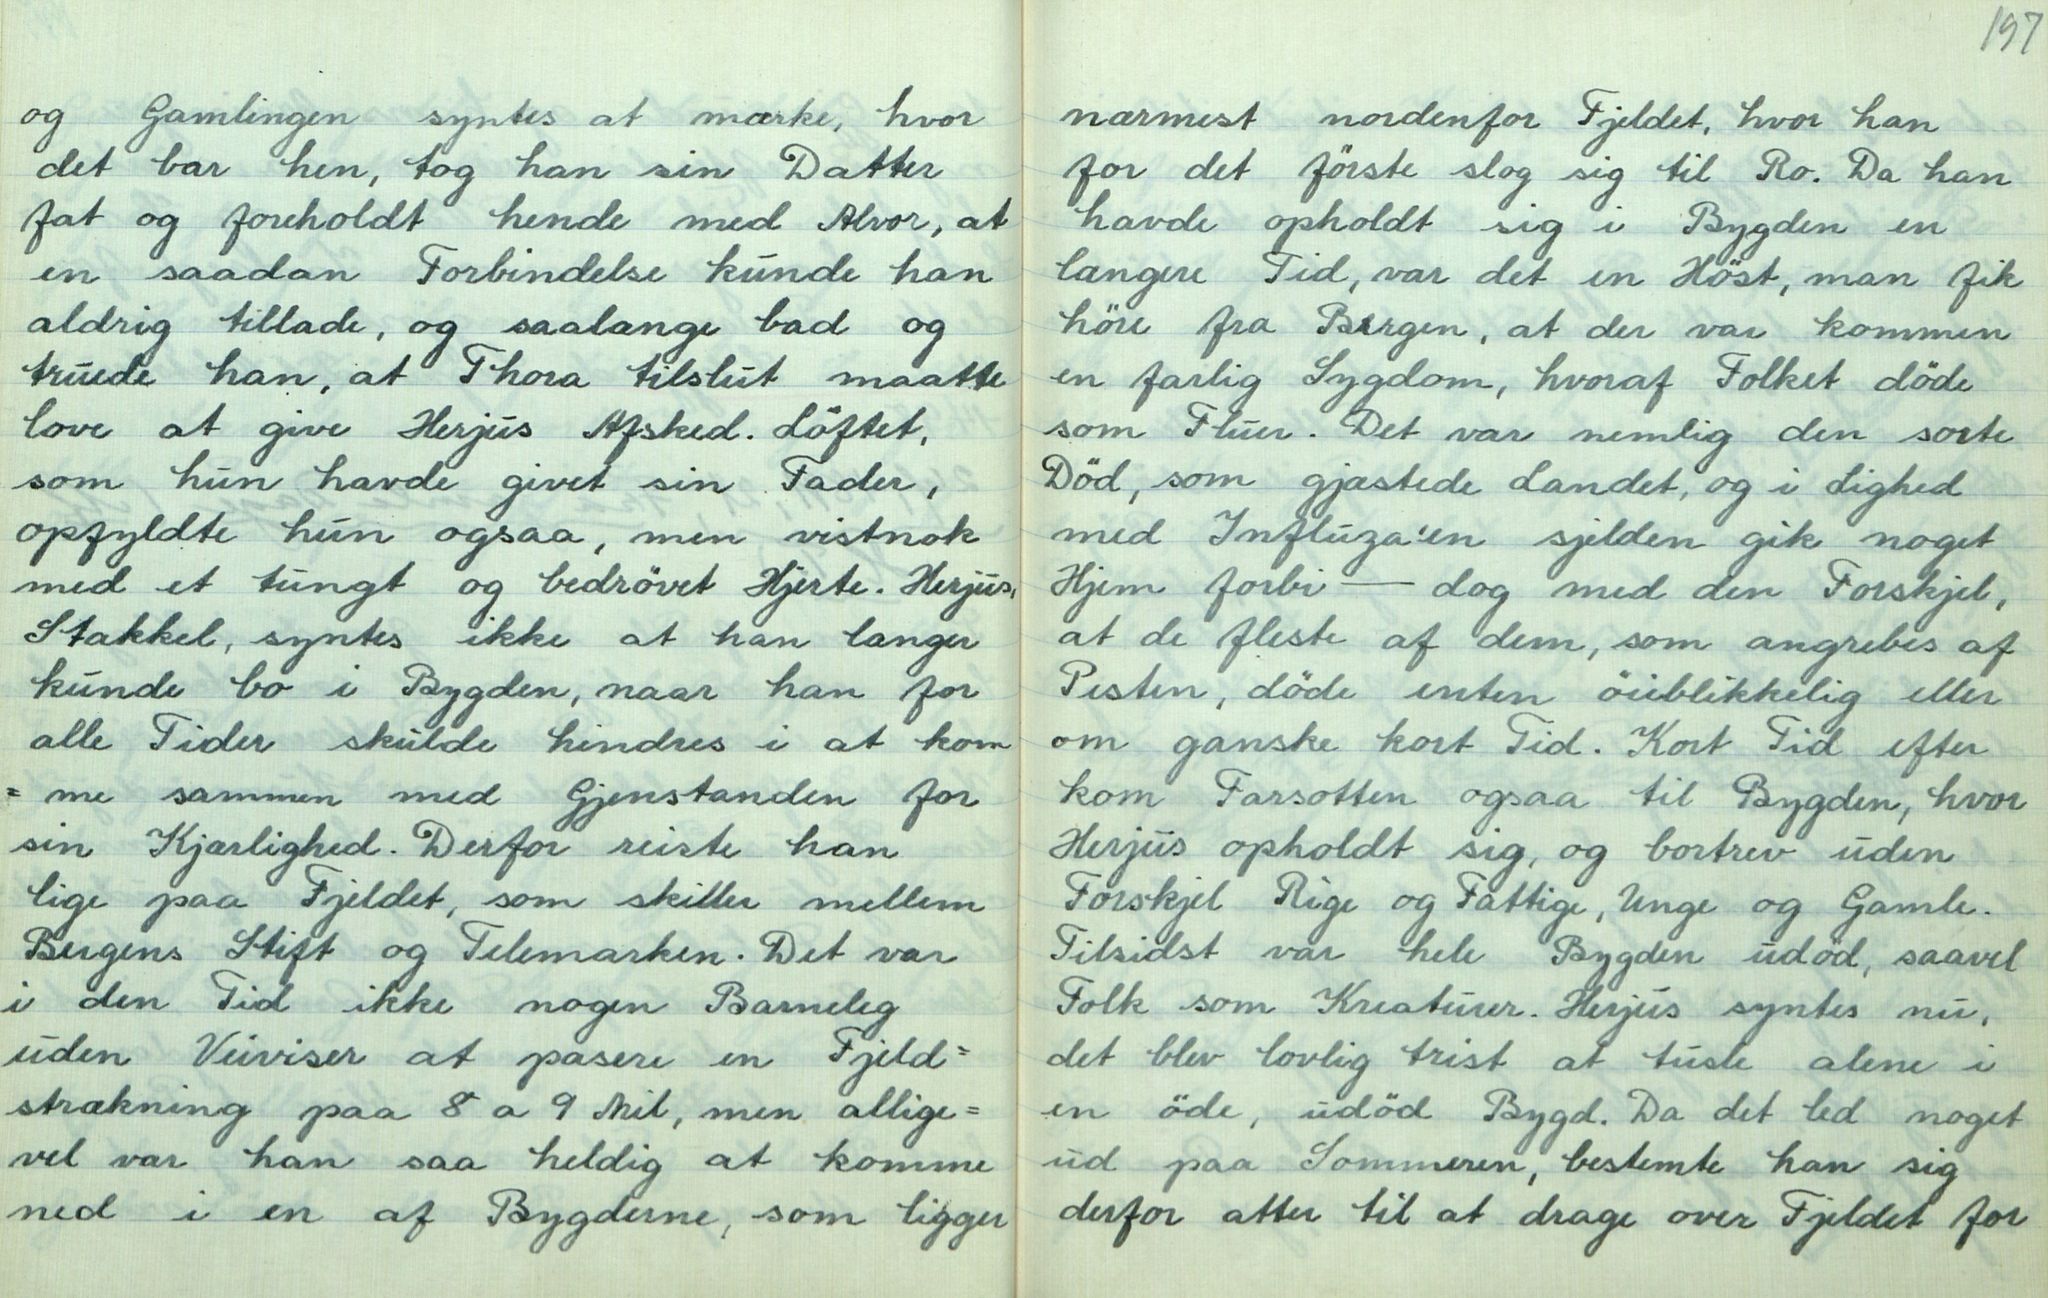 og Gamlingen syntes at mærke, hvor
det bar hen, tog han sin Datter
fat og foreholdt hende med Alvor, at
en saadan Forbindelse kunde han
aldrig tillade, og saalænge bad og
truede han, at Thora tilslut maatte
love at give Herjus Afsked. Löftet,
som hun havde givet sin Fader,
opfyldte hun ogsaa, men vistnok
med et tungt og bedrövet Hjerte. Herjus,
Stakkel, syntes ikke at han længer
kunde bo i Bygden, naar han for
alle Tider skulde hindres i at kom
= me sammen med Gjenstanden for
sin Kjærlighed. Derfor reiste han
lige paa Fjeldet, som skiller mellem
Bergens Stift og Telemarken. Det var
i den Tid ikke nogen Barneleg
uden Veiviser at pasere en Fjeld=
strækning paa 8 a 9 Mil, men allige=
vel var han saa heldig at komme
ned i en af Bygderne, som ligger
197
nærmest nordenfor Fjeldet, hvor han
for det förste slog sig til Ro. Da han
havde opholdt sig i Bygden en
længere Tid, var det en Höst, man fik
höre fra Bergen, at der var kommen
en farlig Sygdom, hvoraf Folket döde
som Fluer. Det var nemlig den sorte
Död, som gjæstede Landet, og i Lighed
med Influza'en sjelden gik noget
Hjem forbi — dog med den Forskjel,
at de fleste af dem, som angrebes af
Pesten, döde enten öieblikkelig eller
om ganske kort Tid. Kort Tid efter
kom Farsotten ogsaa til Bygden, hvor
Herjus opholdt sig, og bortrev uden
Forskjel Rige og Fattige, Unge og Gamle.
Tilsidst var hele Bygden udöd, saavel
Folk som Kreaturer. Herjus syntes nu,
det blev lovlig trist at tusle alene i
en öde, udöd Bygd. Da det led noget
ud paa Sommeren, bestemte han sig
derfor atter til at drage over Fjeldet for